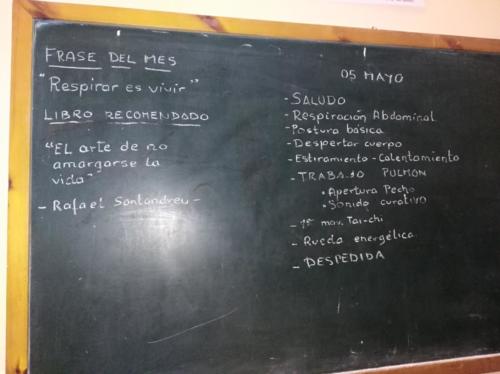 FRASE DEL MES
"Respirar es vivir"
LIBRO RECOMENDADO
"EL arte de no
amargarse la
vida"
- Rafael Santandreu -
05 MAYO
- SALUDO
- Respiración Abdominal
- Postura básica
- Despertar cuerpo
- Estiramiento - Calentamiento
- TRABAJO PULMÓN
• Apertura Pecho
• Sonido curativo
- 1er mov. Tai-chi
- Rueda energética
- DESPEDIDA